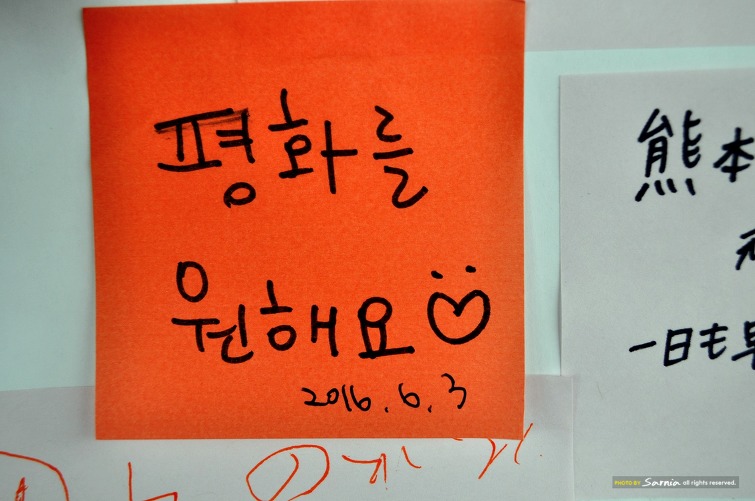 평화를
원해요
2016.6.3
熊本
一日も早
PHOTO BY Sarnia all rights reserved.